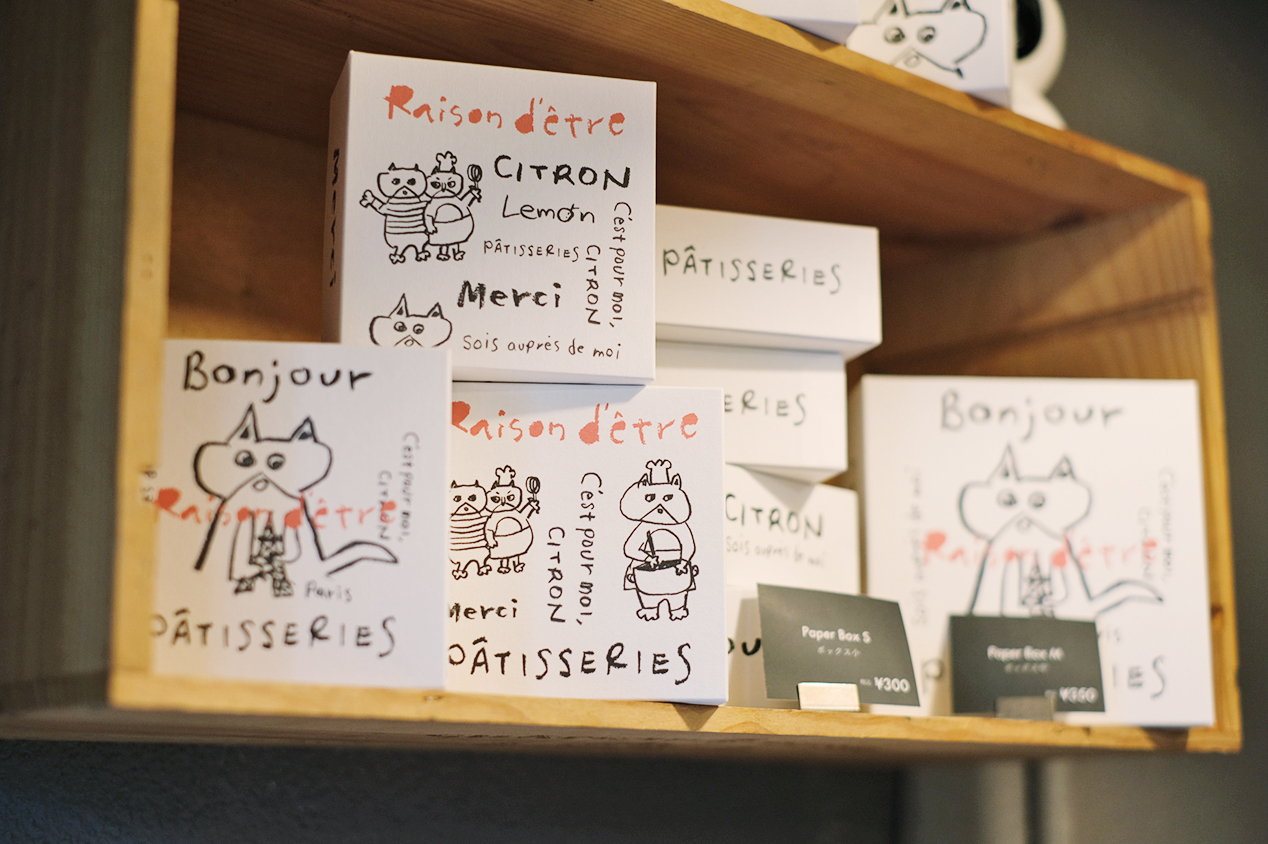 Raison d'être
CITRON
Lemon
PÂTISSERIES
C'est pour moi,
CITRON
Merci
Sois auprès de moi
PÂTISSERIES
ERIES
CITRON
Sois auprès de moi
Bonjour
C'est pour moi,
CITRON
Raison d'être
Paris
PÂTISSERIES
Raison d'être
C'est pour moi,
CITRON
Merci
PÂTISSERIES
Paper Box S
ボックス小
¥300
Bonjour
Raison d'être
IES
Paper Box M
¥350